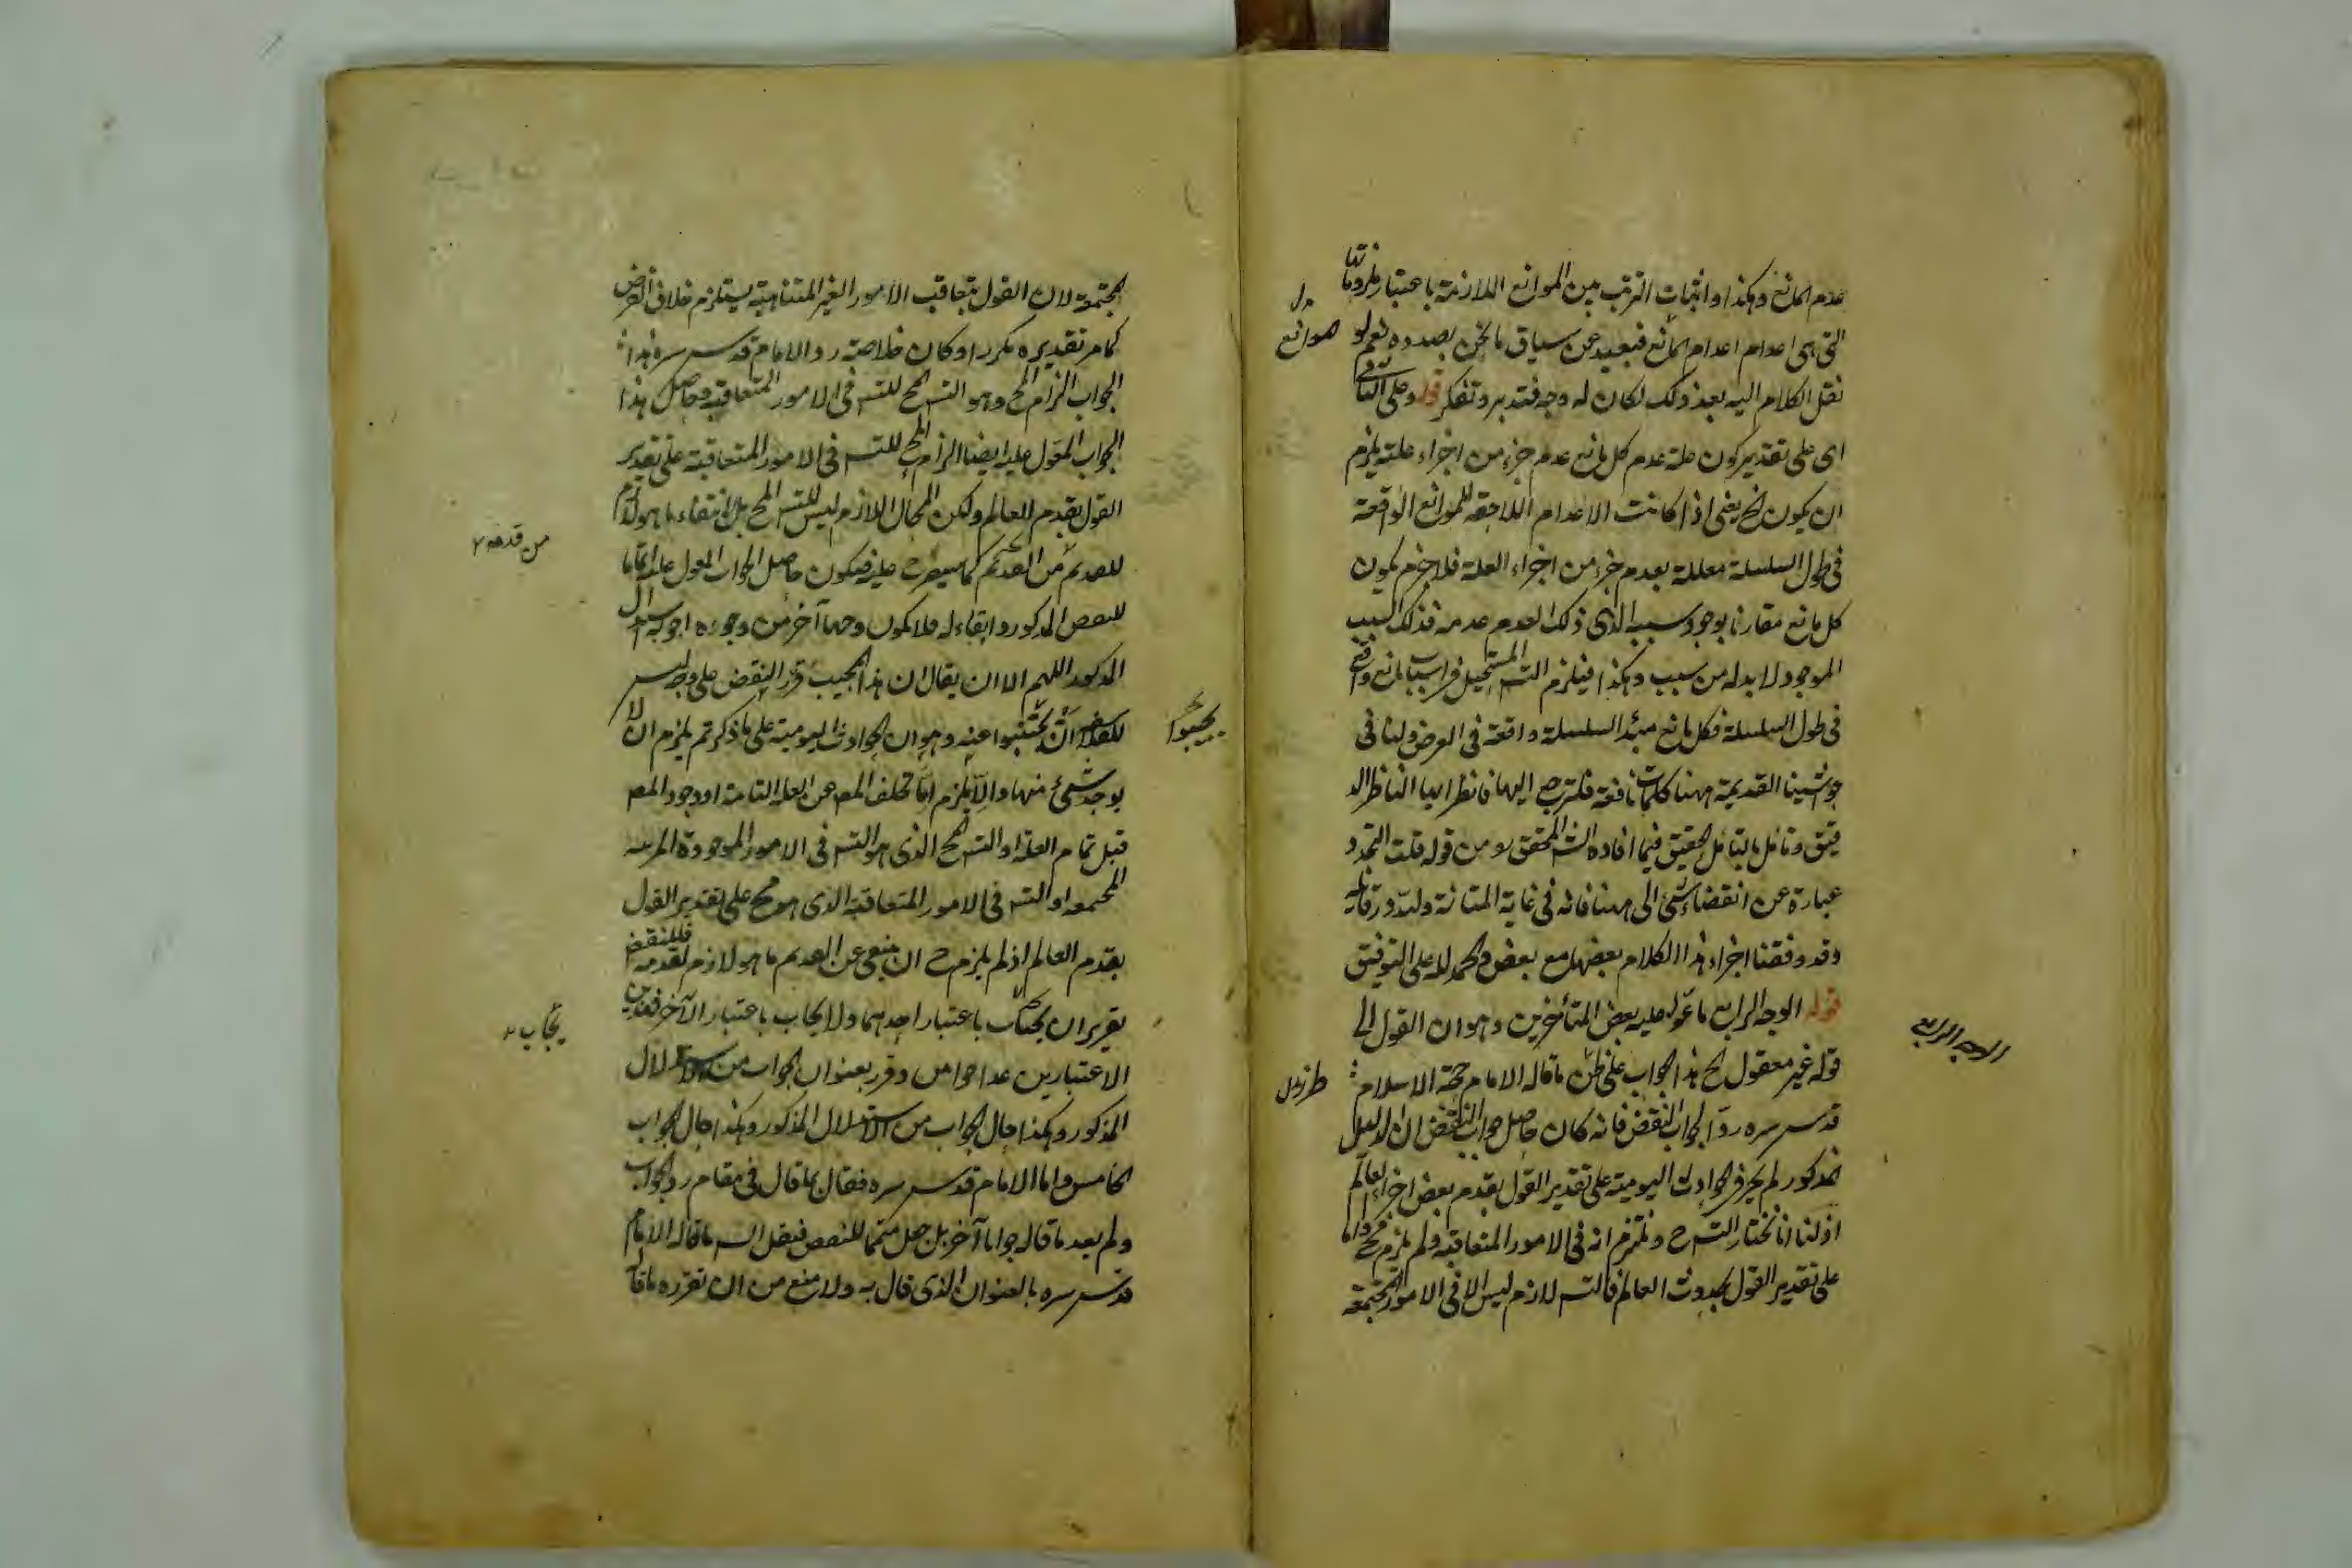 عدم المانع وهكذا واثبات الترتب بين الموانع اللازمة باعتبار ملزوماتها
التى هى اعدام اعدام المانع فبعيد عن سياق ما نحن بصدده نعم لو
موانع
نقل الكلام اليه بعد ذلك لكان له وجه فتدبر وتفكر قوله وعلى الثانى
اى على تقدير كون علة عدم كل مانع عدم جزء من اجزاء علته يلزم
ان يكون الخ يعنى اذا كانت الاعدام اللاحقة للموانع الواقعة
فى طول السلسلة معللة بعدم جزء من اجزاء العلة فلا جرم يكون
كل مانع مقارنا بوجود سببه الذى ذلك العدم عدمه فذلك السبب
الموجود لا بد له من سبب وهكذا فيلزم التسـ المستحيل فى اسباب مانع واقع
فى طول السلسلة فكل مانع مبدأ لسلسلة واقعة فى العرض ولنا فى
حواشينا القديمة ههنا كلمات نافعة فلترجع اليها فانظر ايها الناظر الد
قيق وتامل بالتامل الحقيق فيما افاده الشـ المحقق ره من قوله قلت التجدد
عبارة عن انقضاء شئ الى ههنا فانه فى غاية المتانة ولله در قائله
وقد وفقنا اجراء هذا الكلام بعضها مع بعض والحمد لله على التوفيق
قوله الوجه الرابع ما عول عليه بعض المتأخرين وهو ان القول الى
الوجه الرابع
قوله غير معقول الخ هذا الجواب على ظن ما قاله الامام حجة الاسلام
قدس سره رد الجواب النقض فانه كان حاصل جواب النقض ان الدليل
المذكور لم يجر فى الحوادث اليومية على تقدير القول بقدم بعض اجزاء العالم
اذ لنا ان نختار التسـ ح ونلتزم انه فى الامور المتعاقبة ولم يلزم مح واما
على تقدير القول بحدوث العالم فالتسـ لازم ليس الا فى الامور المجتمعة
المجتمعة لان القول بتعاقب الامور الغير المتناهية يستلزم خلاف الفرض
كما مر تقديره مكررا وكان خلاصة رد الامام قدس سره هذا
الجواب الزام المح وهو التسـ المح للتسـ فى الامور المتعاقبة وحاصل هذا
الجواب المعول عليه ايضا الزام المح للتسـ فى الامور المتعاقبة على تقدير
القول بقدم العالم ولكن المحال اللازم ليس للتسـ المح بل انتفاء ما هو لازم
من قدمه
للقديم من القديم كما سيصرح عليه فيكون حاصل الجواب المعول عليه اتماما
للنقض المذكور وابقاء له فلا يكون وجها آخر من وجوه اجوبة السؤال
المذكور اللهم الا ان يقال ان هذا المجيب قرر النقض على وجه ليس
للفلاسفة ان يجيبوا عنه وهو ان الحوادث اليومية على ما ذكرتم يلزم ان لا
يجيبوا
يوجد شئ منها والا يلزم اما تخلف المعـ عن العلة التامة او وجود المعـ
قبل تمام العلة او التسـ المح الذى هو التسـ فى الامور الموجودة المرتبة
المجتمعة او التسـ فى الامور المتعاقبة الذى هو مح على تقدير القول
بقدم العالم اذ لم يلزم ح ان ينتفى عن القديم ما هو لازم لقدمه فللنقض
تقريران يجاب باعتبار احدهما ولا يجاب باعتبار الآخر فهذين
يجاب
الاعتبارين عدا جوابين وقرر بعنوان الجواب من الاستدلال
المذكور وهكذا حال الجواب من الاستدلال المذكور وهكذا حال الجواب
الخامس واما الامام قدس سره فقال ما قال فى مقام رد الجواب
ولم يعد ما قاله جوابا آخر بل جعل متمما للنقض فنقل الشـ ما قاله الامام
قدس سره بالعنوان الذى قال به ولا منع من ان نقرره ما قال